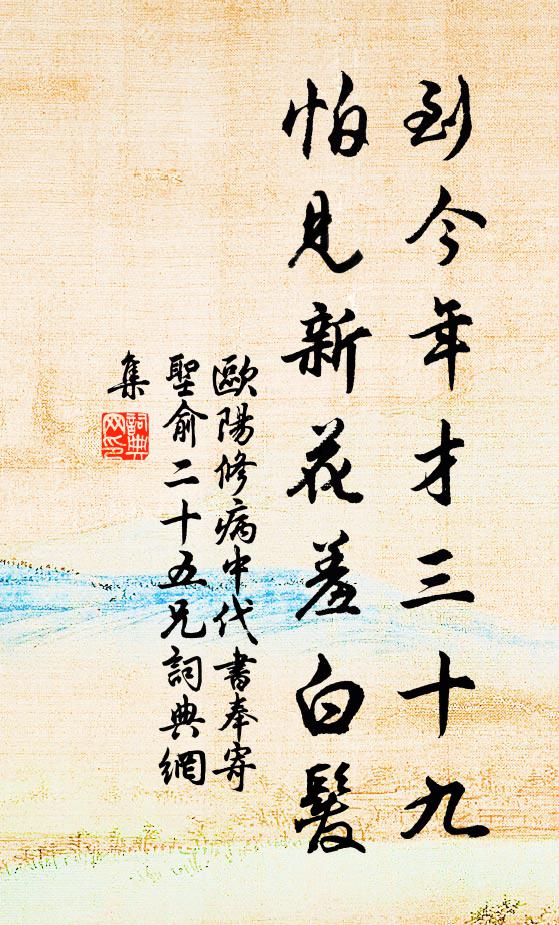 到今年才三十九
怕見新花羞白髮
歐陽修病中代書奉寄
聖俞二十五兄詞典網
集
詞典
网印